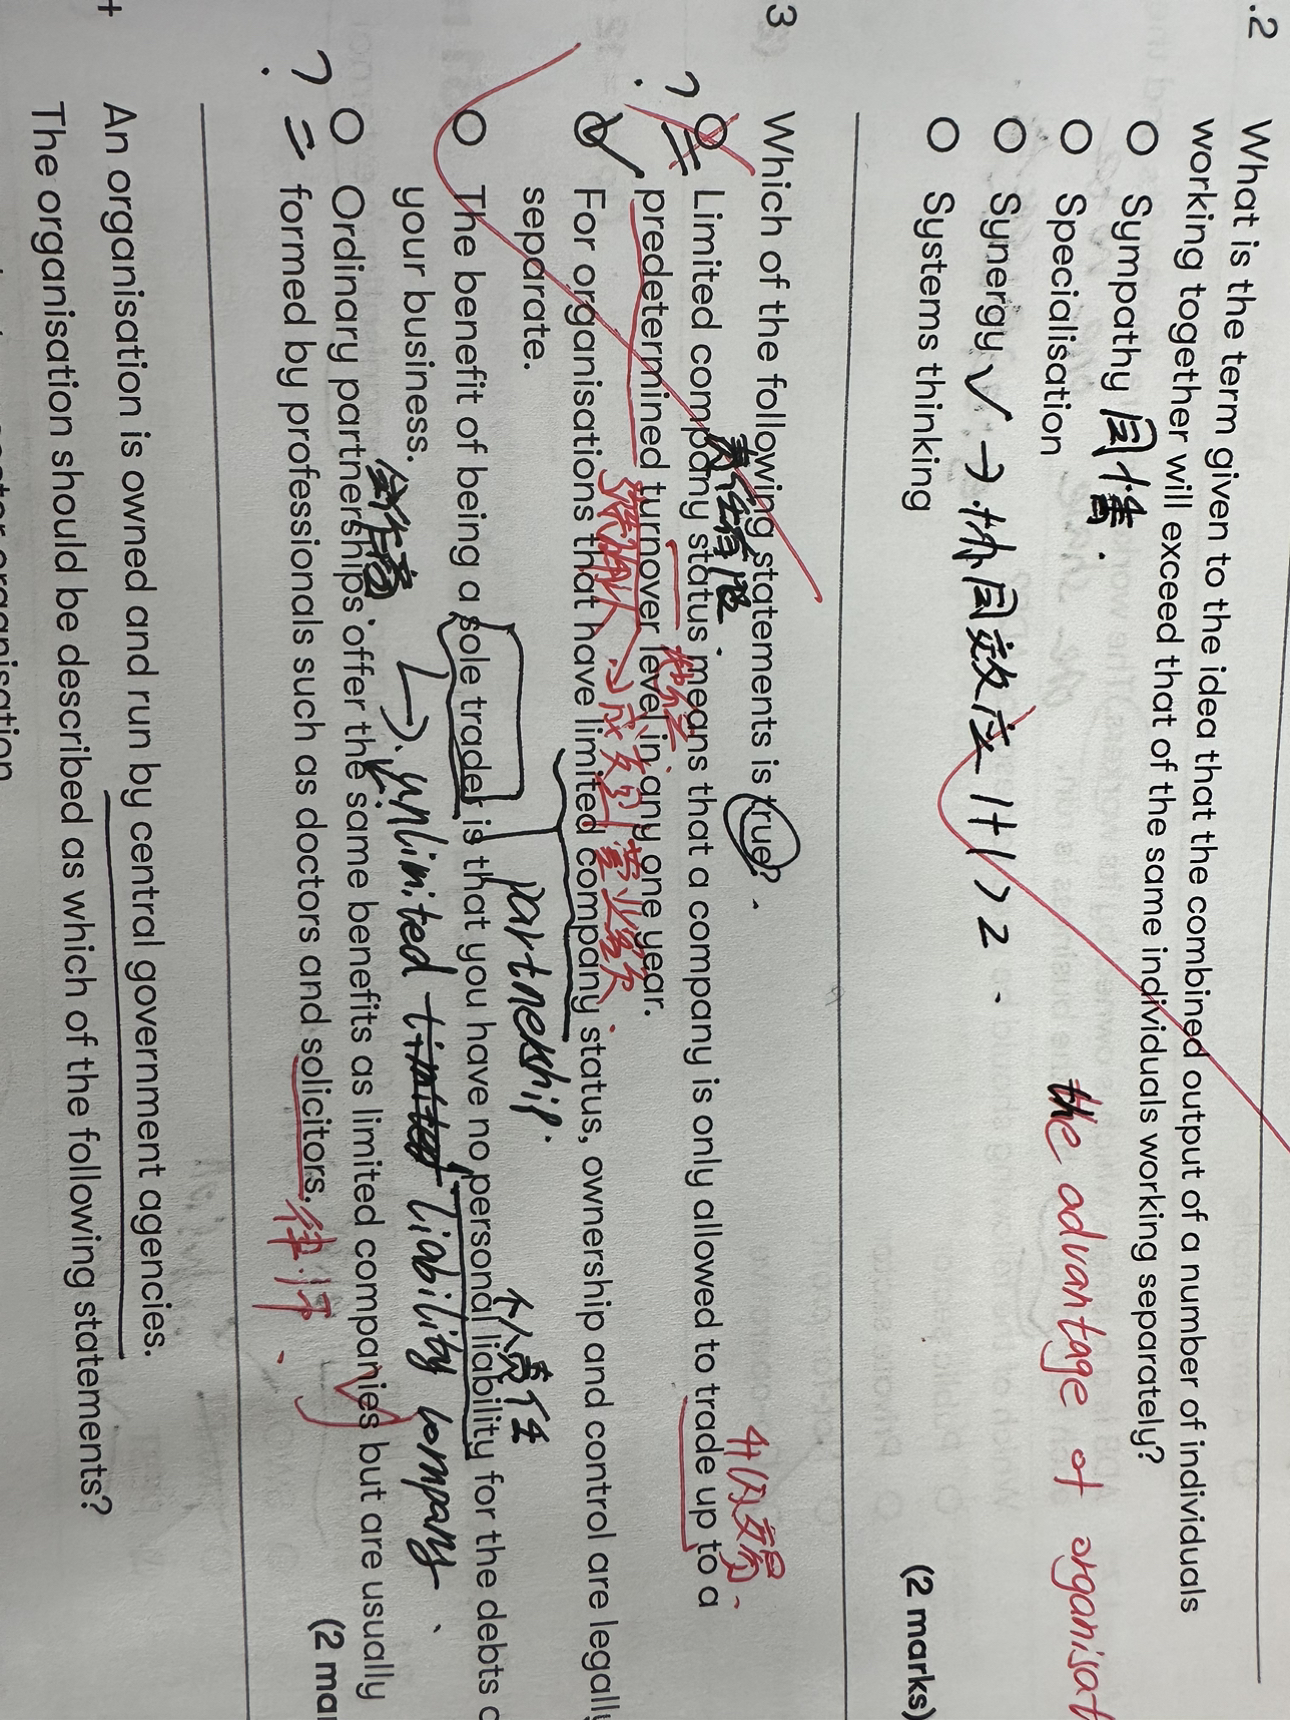 .2 What is the term given to the idea that the combined output of a number of individuals
working together will exceed that of the same individuals working separately?
Sympathy 同情.
Specialisation
the advantage of organisat
Synergy ✓ → 协同效应 1+1>2.
Systems thinking
(2 marks)
3 Which of the following statements is true?
责任有限. 可以交易.
? = Limited company status means that a company is only allowed to trade up to a
predetermined turnover level in any one year.
预先确认 → 成交额 营业额
For organisations that have limited company status, ownership and control are legally
separate.
partnership.
The benefit of being a sole trader is that you have no personal liability for the debts o
个人责任
your business.
↳ unlimited liability company.
? = Ordinary partnerships offer the same benefits as limited companies but are usually
formed by professionals such as doctors and solicitors. 律师.
(2 mar
An organisation is owned and run by central government agencies.
The organisation should be described as which of the following statements?